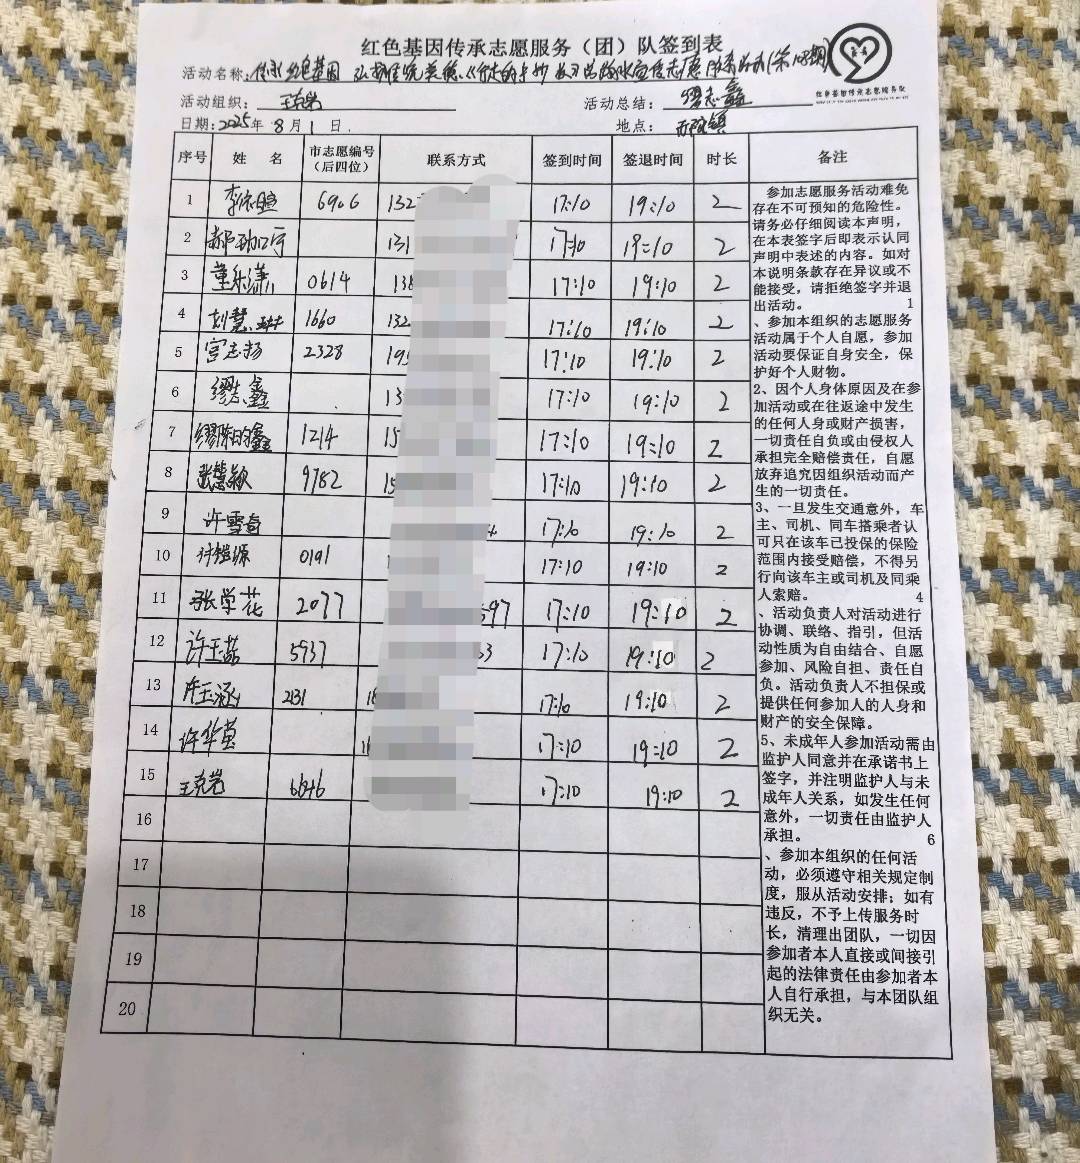 红色基因传承志愿服务（团）队签到表
活动名称：传承红色基因 弘扬传统美德
活动组织： 王克岩 活动总结： 缪志鑫
红色基因传承志愿服务队
日期：2025年 8 月 1 日 地点： 镇
序号 姓 名 市志愿编号（后四位） 联系方式 签到时间 签退时间 时长 备注
1 李依暄 6906 132 17:10 19:10 2
2 郝 131 17:10 19:10 2
3 董乐潇 0614 138 17:10 19:10 2
4 刘慧 1660 132 17:10 19:10 2
5 宫志扬 2328 195 17:10 19:10 2
6 缪志鑫 13 17:10 19:10 2
7 缪 鑫 1214 15 17:10 19:10 2
8 张慧颖 9782 15 17:10 19:10 2
9 许雪奇 17:10 19:10 2
10 许 源 0191 17:10 19:10 2
11 张学花 2077 597 17:10 19:10 2
12 许玉茹 5937 33 17:10 19:10 2
13 许玉涵 2131 18 17:10 19:10 2
14 许华莹 17:10 19:10 2
15 王克岩 6846 17:10 19:10 2
16
17
18
19
20
参加志愿服务活动难免
存在不可预知的危险性。
请务必仔细阅读本声明，
在本表签字后即表示认同
声明中表述的内容。如对
本说明条款存在异议或不
能接受，请拒绝签字并退
出活动。 1
、参加本组织的志愿服务
活动属于个人自愿，参加
活动要保证自身安全，保
护好个人财物。
2、因个人身体原因及在参
加活动或在往返途中发生
的任何人身或财产损害，
一切责任自负或由侵权人
承担完全赔偿责任，自愿
放弃追究因组织活动而产
生的一切责任。
3、一旦发生交通意外，车
主、司机、同车搭乘者认
可只在该车已投保的保险
范围内接受赔偿，不得另
行向该车主或司机及同乘
人索赔。 4
、活动负责人对活动进行
协调、联络、指引，但活
动性质为自由结合、自愿
参加、风险自担、责任自
负。活动负责人不担保或
提供任何参加人的人身和
财产的安全保障。
5、未成年人参加活动需由
监护人同意并在承诺书上
签字，并注明监护人与未
成年人关系，如发生任何
意外，一切责任由监护人
承担。 6
、参加本组织的任何活
动，必须遵守相关规定制
度，服从活动安排；如有
违反，不予上传服务时
长，清理出团队，一切因
参加者本人直接或间接引
起的法律责任由参加者本
人自行承担，与本团队组
织无关。